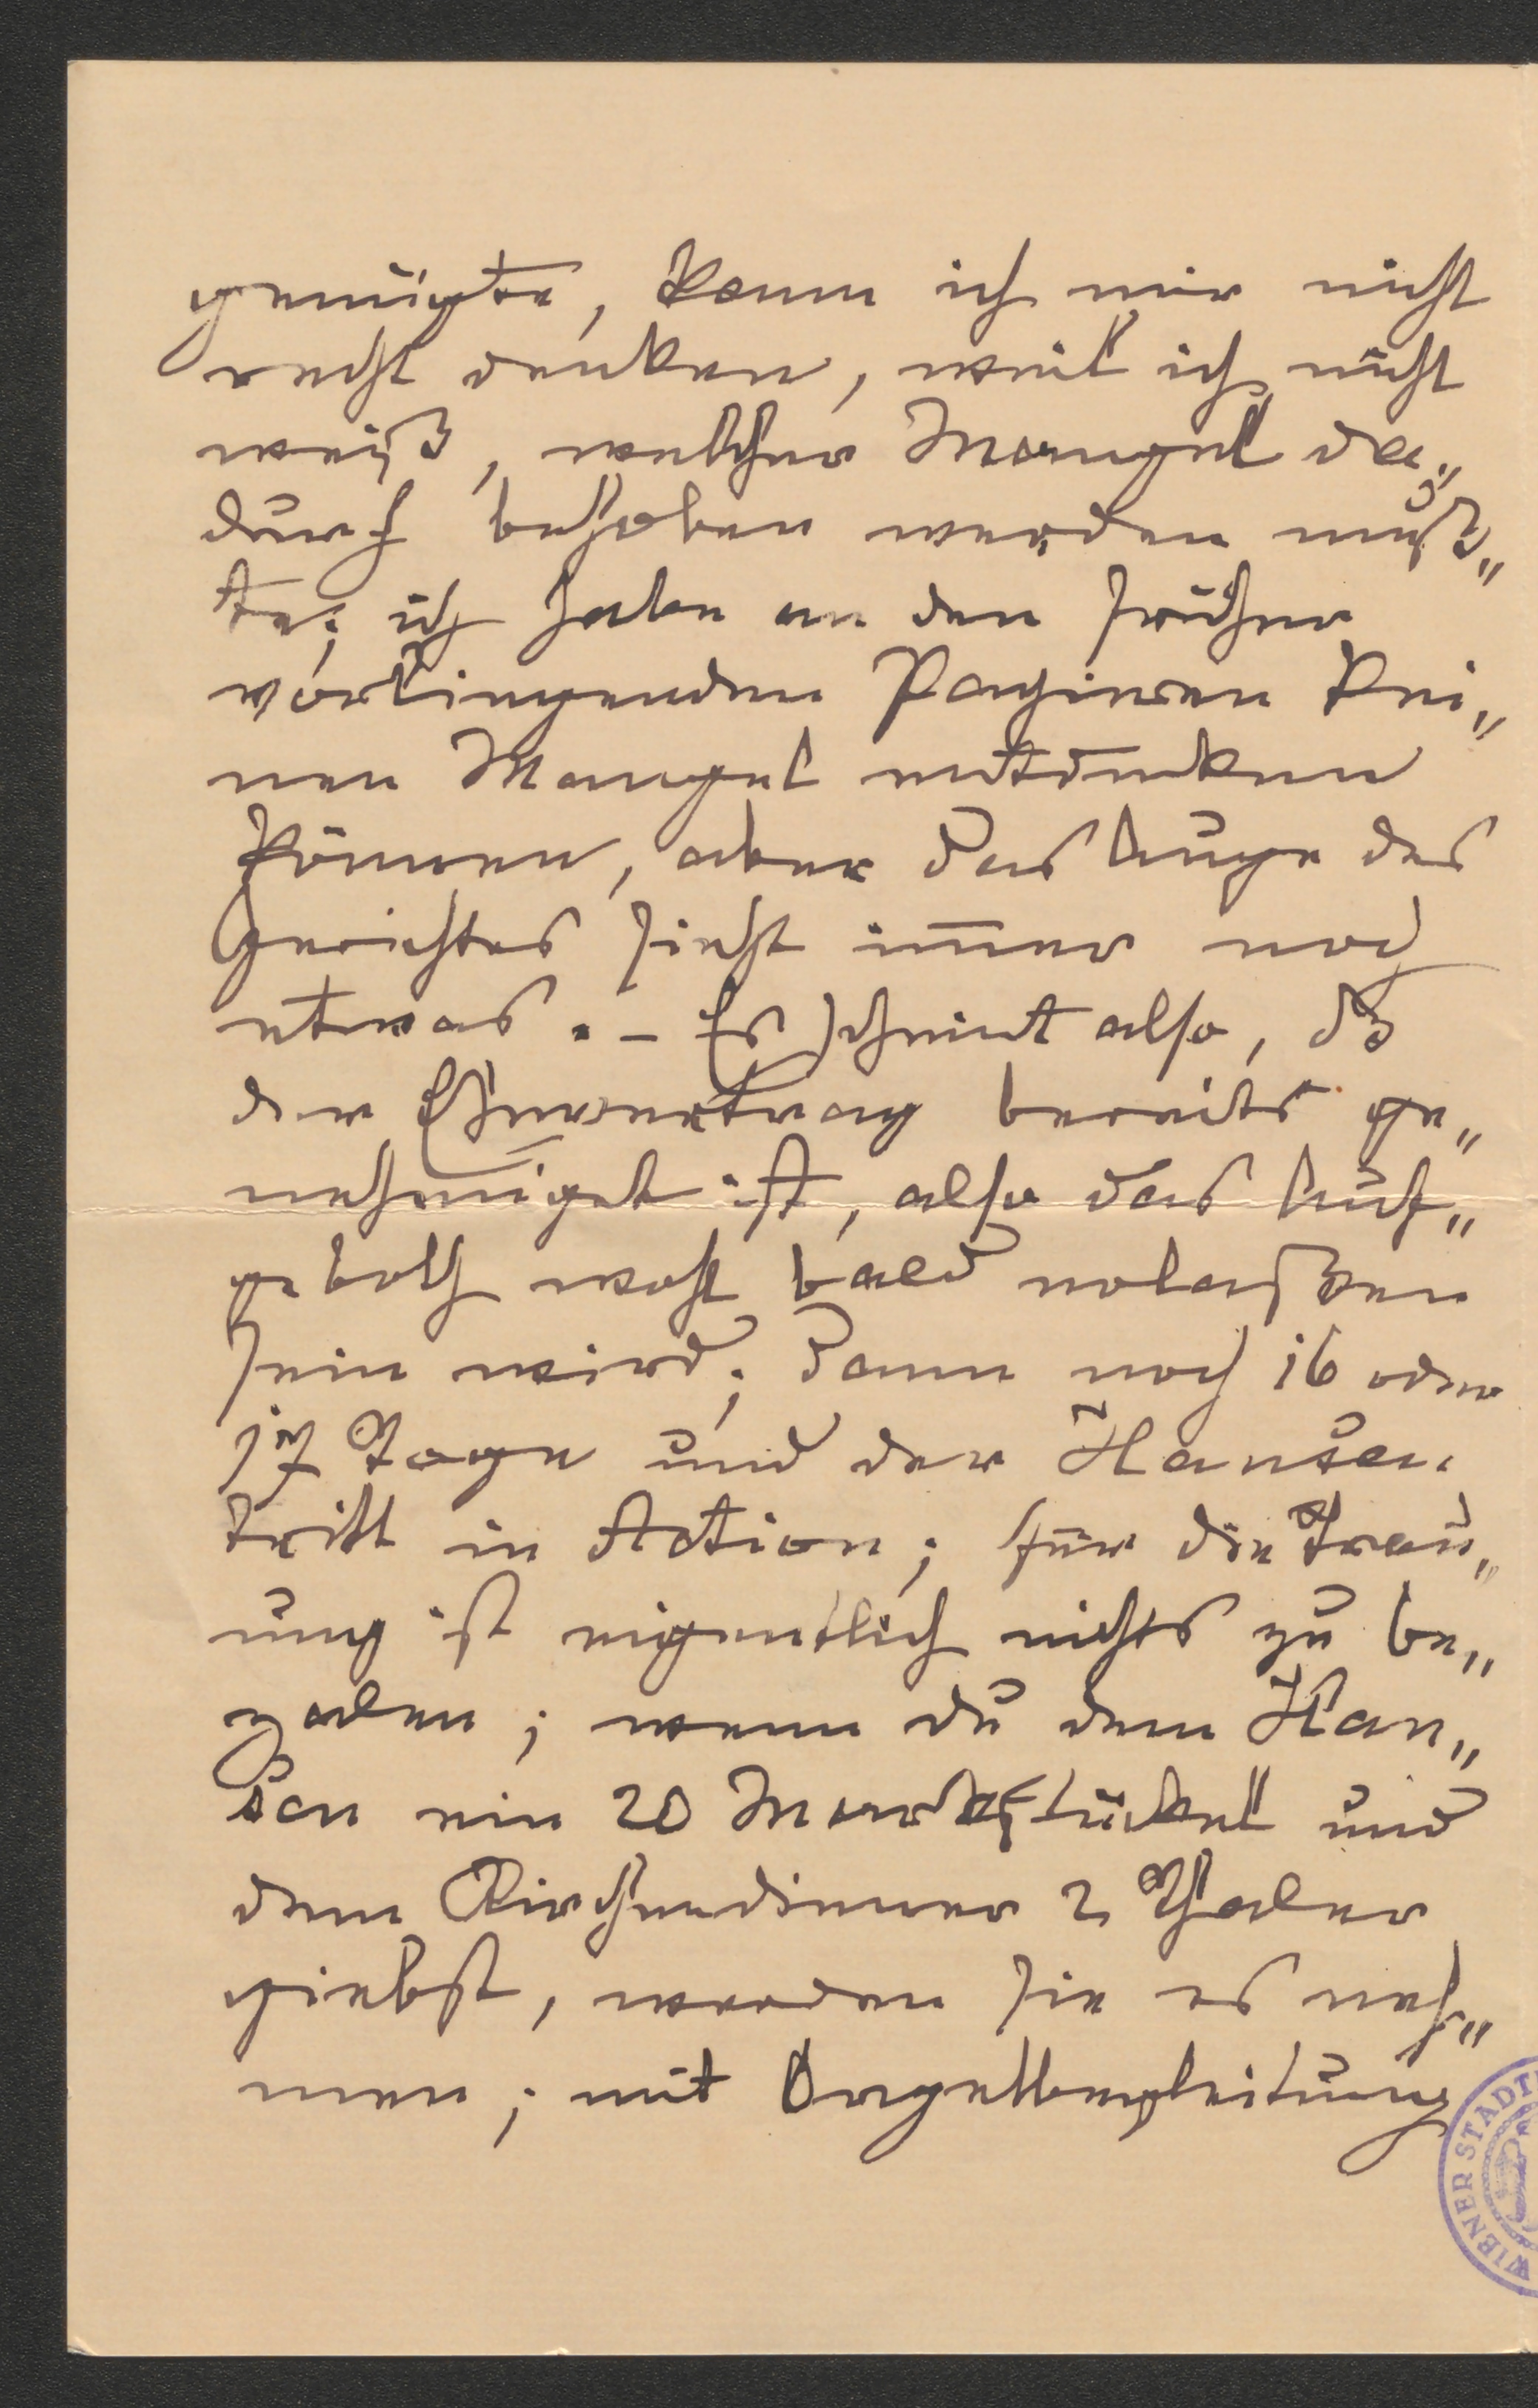 genügte, kann ich mir nicht
recht denken, weil ich nicht
weiß, welcher Mangel da„
durch behoben werden muß„
te; ich habe an den früher
vorliegenden Papieren kei„
nen Mangel entdecken
können, aber das Auge des
Gerichtes sieht im̅er noch
etwas. – Es scheint also, dß
der Ehevertrag bereits ge„
nehmiget ist, also das Auf„
geboth wohl bald erlaßen
sein wird; dann noch 16 oder
17 Tage und der Hansen
tritt in Action; für die Trau„
ung ist eigentlich nichts zu be„
zalen; wenn du dem Han„
sen ein 20 Markstückel und
dem Kirchendiener 2 Thaler
giebst, werden sie es neh„
men; mit Orgelbegleitung
WIENER STADT